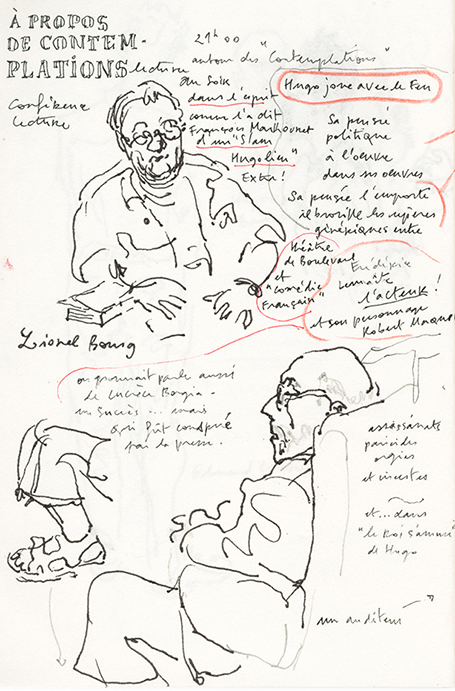 À PROPOS
DE CONTEM-
PLATIONS
lecture
Conférence
lecture
21h00
autour des "Contemplations"
au soir
dans l'esprit
comme l'a dit
François
d'un "Slam
Hugolien"
Extra!
Hugo joue avec le Feu
Sa pensée
politique
à l'oeuvre
dans ses oeuvres
Sa pensée l'emporte
il brouille les repères
génériques entre
théâtre
de Boulevard
et
"comédie
Française"
l'acteur!
et son personnage
Robert Macaire
Lionel Bourg
on pourrait parler aussi
de Lucrèce Borgia-
un succès... mais
qui fût conspué
par la presse.
assassinats
parricides
orgies
et incestes
et... dans
"le Roi s'amuse"
de Hugo
un auditeur